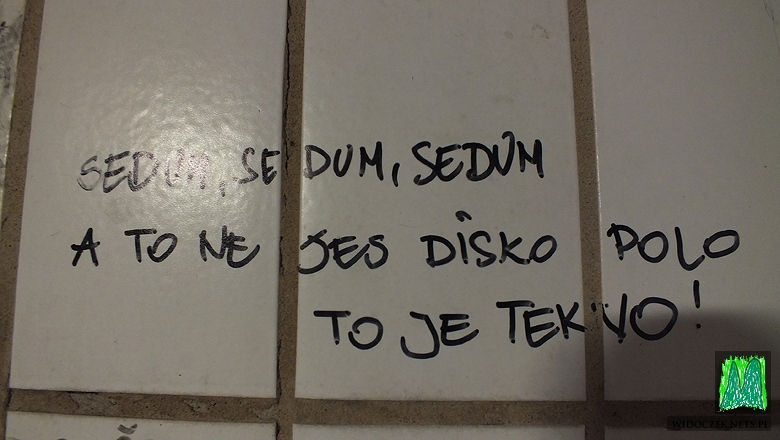 SEDUM, SEDUM, SEDUM
A TO NE JES DISKO POLO
TO JE TEKVO!
WIDOCZEK.NETS.PL